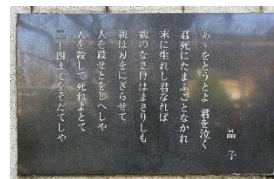 あゝをとうとよ 君を泣く
君死にたまふことなかれ
末に生れし君なれば
親のなさけはまさりしも
親は刃をにぎらせて
人を殺せとをしへしや
人を殺して死ねよとて
二十四までをそだてしや
晶子